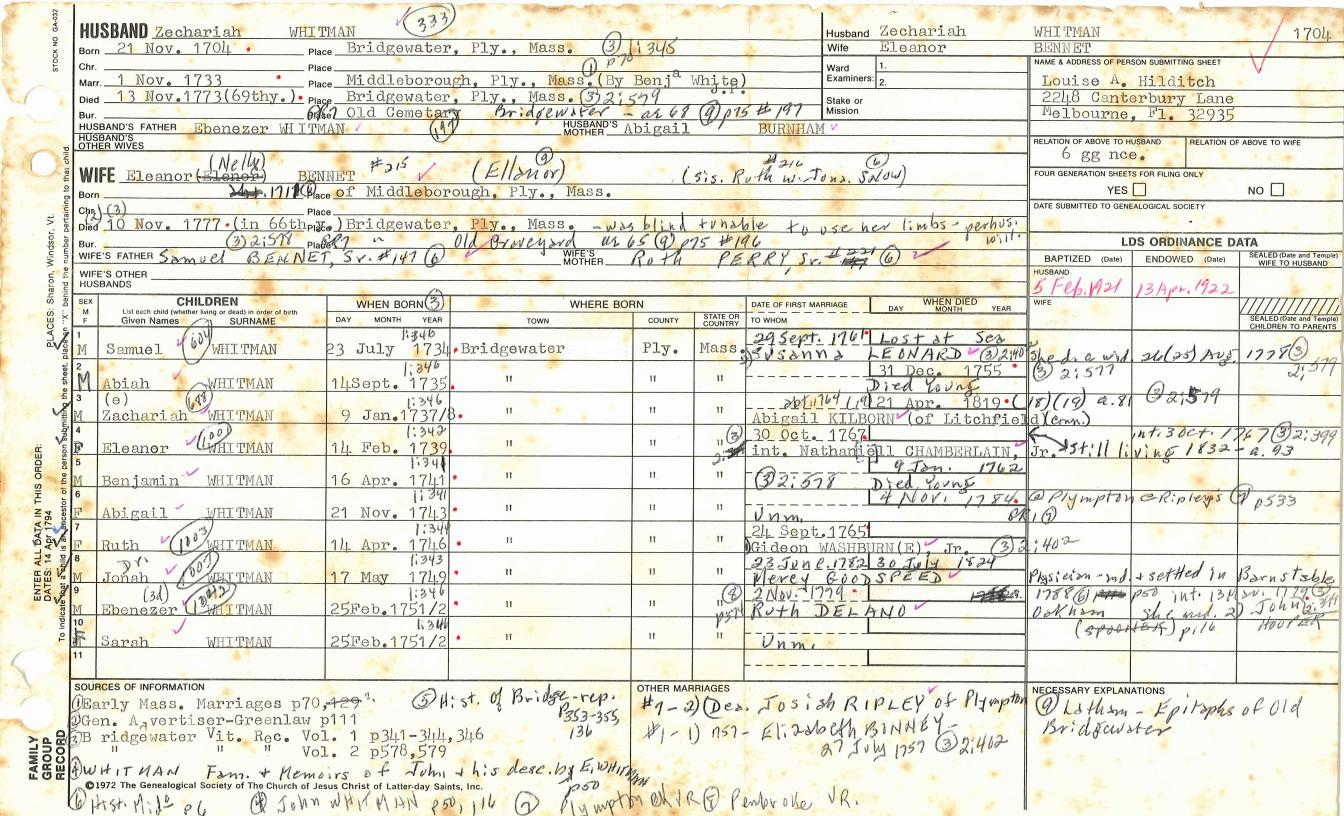 STOCK NO. GA-032
PLACES: Sharon, Windsor, Vt.
ENTER ALL DATA IN THIS ORDER:
DATES: 14 Apr 1794
FAMILY GROUP RECORD
HUSBAND Zechariah WHITMAN 333
Born 21 Nov. 1704 Place Bridgewater, Ply., Mass. (3) 1:345
Chr. Place (1) p70
Marr. 1 Nov. 1733 Place Middleborough, Ply., Mass. (By Benja White) J.P.
Died 13 Nov. 1773(69thy.) Place Bridgewater, Ply., Mass. (3) 2:579
Bur. Place Old Cemetary Bridgewater - ae 68 (9) p75 #197
HUSBAND'S FATHER Ebenezer WHITMAN (197) HUSBAND'S MOTHER Abigail BURNHAM
HUSBAND'S OTHER WIVES
(Nelly) #215 (Ellanor) (9) #216 (6)
WIFE Eleanor (Elenor) BENNET (sis. Ruth w. Jona. SNOW)
Born 1711 (6) Place of Middleborough, Ply., Mass.
Chr. (3) Place
Died 10 Nov. 1777 (in 66th Place) Bridgewater, Ply., Mass. - was blind & unable to use her limbs - perhus.
Bur. (3) 2:578 Place GR7 " Old Graveyard ae 65 (9) p75 #196 will.
WIFE'S FATHER Samuel BENNET, Sr. #147 (6) WIFE'S MOTHER Ruth PERRY, Sr. (6)
WIFE'S OTHER HUSBANDS
Husband Zechariah WHITMAN 1704
Wife Eleanor BENNET
Ward Examiners: 1. 2.
Stake or Mission
NAME & ADDRESS OF PERSON SUBMITTING SHEET
Louise A. Hilditch
2248 Canterbury Lane
Melbourne, Fl. 32935
RELATION OF ABOVE TO HUSBAND RELATION OF ABOVE TO WIFE
6 gg nce.
FOUR GENERATION SHEETS FOR FILING ONLY
YES NO
DATE SUBMITTED TO GENEALOGICAL SOCIETY
LDS ORDINANCE DATA
BAPTIZED (Date) ENDOWED (Date) SEALED (Date and Temple) WIFE TO HUSBAND
HUSBAND
5 Feb. 1921 13 Apr. 1922
WIFE
SEALED (Date and Temple) CHILDREN TO PARENTS
SEX M F CHILDREN WHEN BORN (3) WHERE BORN DATE OF FIRST MARRIAGE WHEN DIED
List each child (whether living or dead) in order of birth
Given Names SURNAME DAY MONTH YEAR TOWN COUNTY STATE OR COUNTRY TO WHOM DAY MONTH YEAR
1 1:346 29 Sept. 1761 Lost at Sea
M Samuel (604) WHITMAN 23 July 1734 Bridgewater Ply. Mass. Susanna LEONARD (3) 2:40 She d. a wid. 26(25) Aug. 1778 (3)
2 1:346 31 Dec. 1755 (3) 2:577 2:579
M Abiah WHITMAN 14Sept. 1735 " " " Died Young
3 (e) 1:346 1764 21 Apr. 1819 (18)(19) a.81 (3) 2:579
M Zachariah (698) WHITMAN 9 Jan. 1737/8 " " " Abigail KILBORN (of Litchfield Conn.)
4 1:342 (3) 30 Oct. 1767 int. 3 Oct. 1767 (3) 2:399
F Eleanor (100) WHITMAN 14 Feb. 1739 " " " int. Nathaniell CHAMBERLAIN, Jr. still living 1832 - a. 93
5 1:341 9 Jan. 1762
M Benjamin WHITMAN 16 Apr. 1741 " " " (3) 2:578 Died Young
6 1:341 4 Nov. 1784 @ Plympton @ Ripley's (7) p533
F Abigail WHITMAN 21 Nov. 1743 " " " Unm.
7 1:344 24 Sept. 1765
F Ruth (1003) WHITMAN 14 Apr. 1746 " " " Gideon WASHBURN(E), Jr. (3) 2:402
8 Dr. 1:343 23 June 1782 30 July 1824
M Jonah (1007) WHITMAN 17 May 1749 " " " Mercy GOODSPEED Physician - md. & settled in Barnstable
9 (3d) 1:346 (8) 2 Nov. 1779 1788 (6) p50 int. 13 Mar. 1779
M Ebenezer WHITMAN 25Feb.1751/2 " " " Ruth DELANO Oakham She md. 2) John HOOPER
10 1:346 (SPOONER) p116
F Sarah WHITMAN 25Feb.1751/2 " " " Unm.
11
SOURCES OF INFORMATION
(1) Early Mass. Marriages p70, 129
(2) Gen. Advertiser-Greenlaw p111
(3) B ridgewater Vit. Rec. Vol. 1 p341-344,346
" " Vol. 2 p578,579
(4) WHITMAN Fam. & Memoirs of John & his desc. by E. WHITMAN p50
(5) Hist. of Bridge-rep. p353-355, 136
©1972 The Genealogical Society of The Church of Jesus Christ of Latter-day Saints, Inc.
(6) Hist. Mid° p6 (4) John WHITMAN p50, 116 (7) Plympton Ch VR (8) Penbroke VR.
OTHER MARRIAGES
#7-2) (Dea. Josiah RIPLEY of Plympton
#1-1) 1757 - Elizabeth BINNEY -
27 July 1757 (3) 2:402
NECESSARY EXPLANATIONS
(9) Latham - Epitaphs of Old
Bridgewater